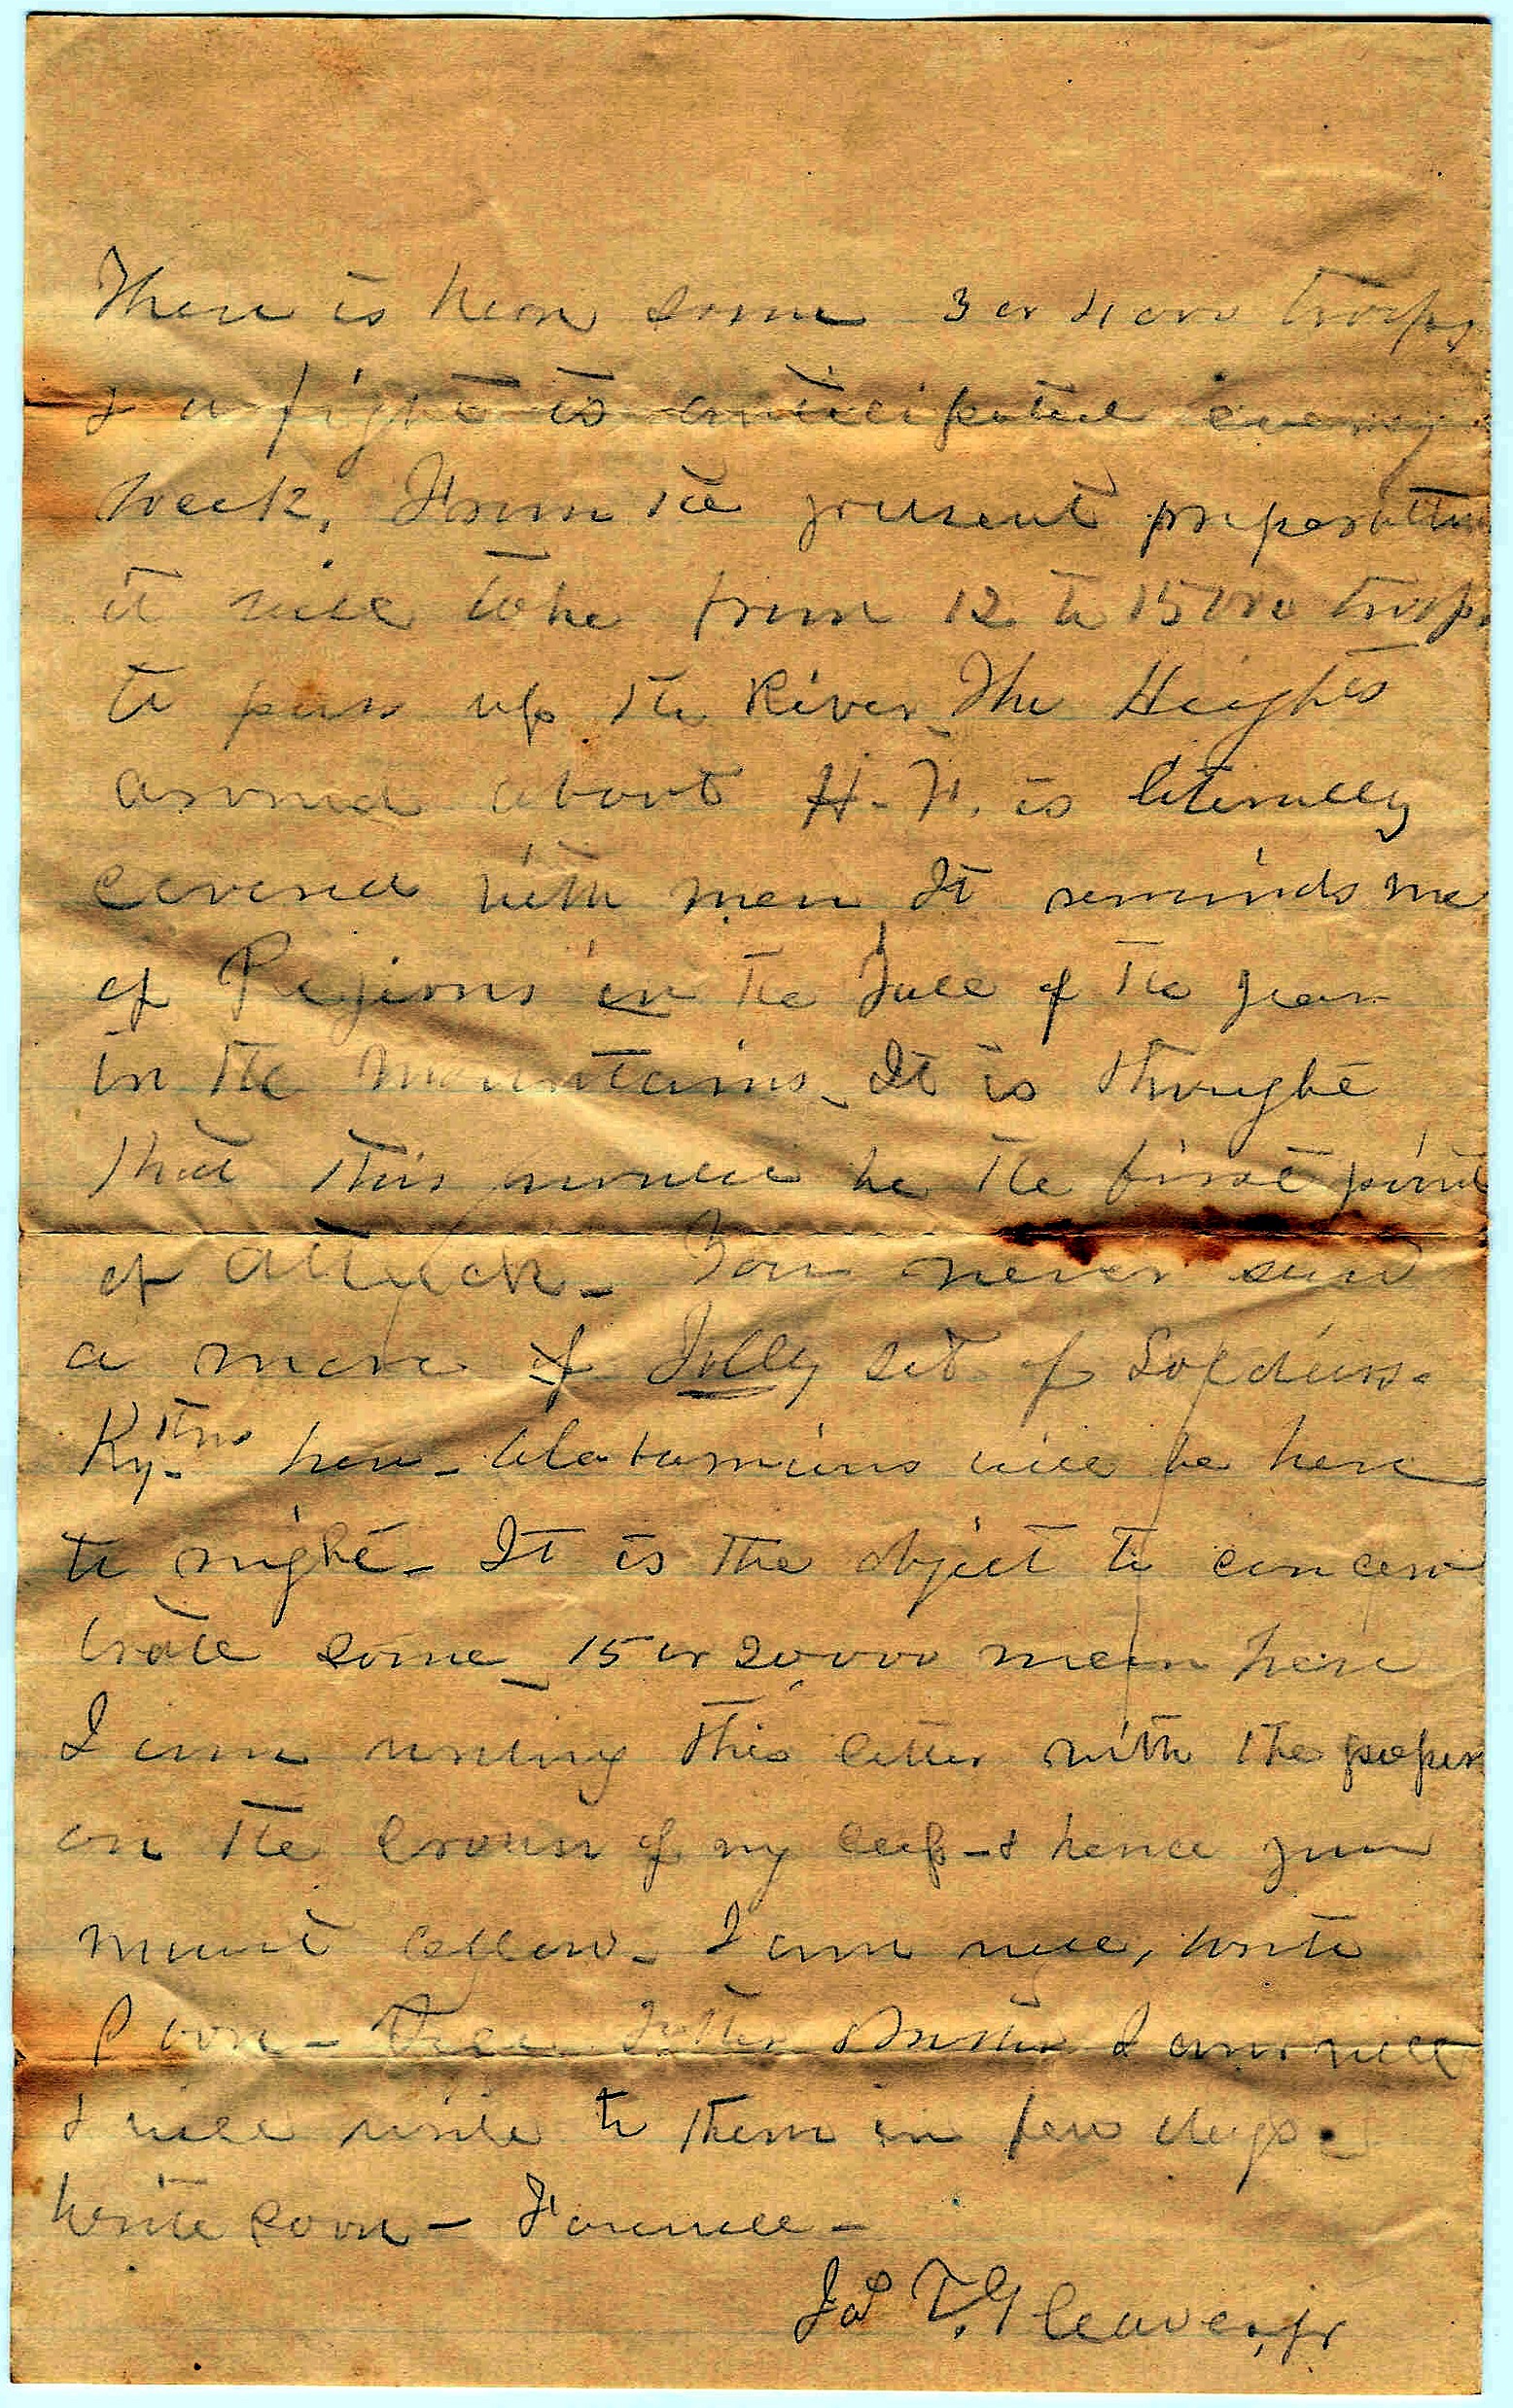 There is here some 3 or 4000 troops
& a fight is anticipated every
week, From the present preparation
it will take from 12 to 15000 troops
to pass up the River The Heights
around about H. F. is literally
covered with men It reminds me
of Pigeons in the Fall of the year
in the mountains. It is thought
that this would be the first point
of attack - You never saw
a more of Jolly set of Soldiers.
Ky-tns here - Alabamians will be here
to night - It is the object to concen
trate some 15 or 20000 men here
I am writing this letter with the paper
on the Crown of my cap - & hence you
must allow - I am well, write
Soon - Tell I am well
I will write to them in few days.
Write soon - Farewell -
Jas T. Gleaves, jr